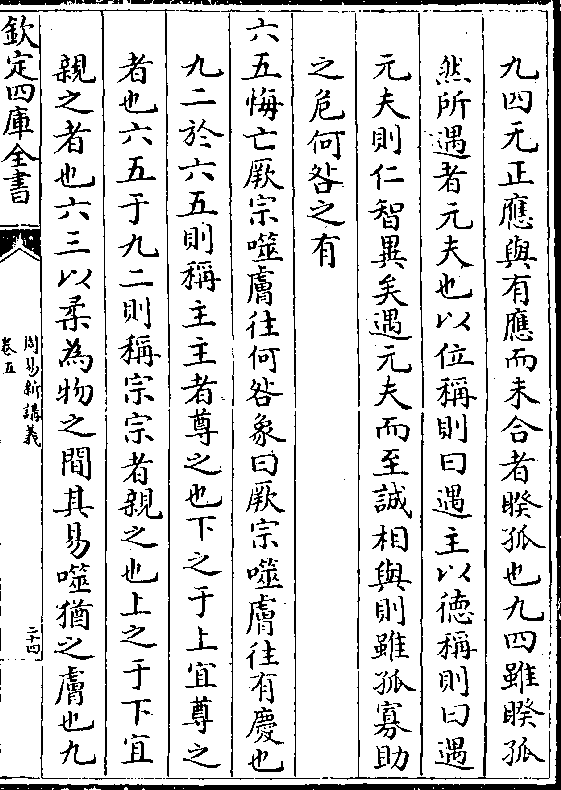 九四无正應與有應而未合者睽孤也九四雖睽孤
然所遇者元夫也以位稱則曰遇主以徳稱則曰遇
元夫則仁智異矣遇元夫而至誠相與則雖孤寡助
之危何咎之有
六五悔亡厥宗噬膚往何咎象曰厥宗噬膚往有慶也
九二於六五則稱主主者尊之也下之于上宜尊之
者也六五于九二則稱宗宗者親之也上之于下宜
親之者也六三以柔為物之間其易噬猶之膚也九
欽定四庫全書
周易新講義
卷五
二十四